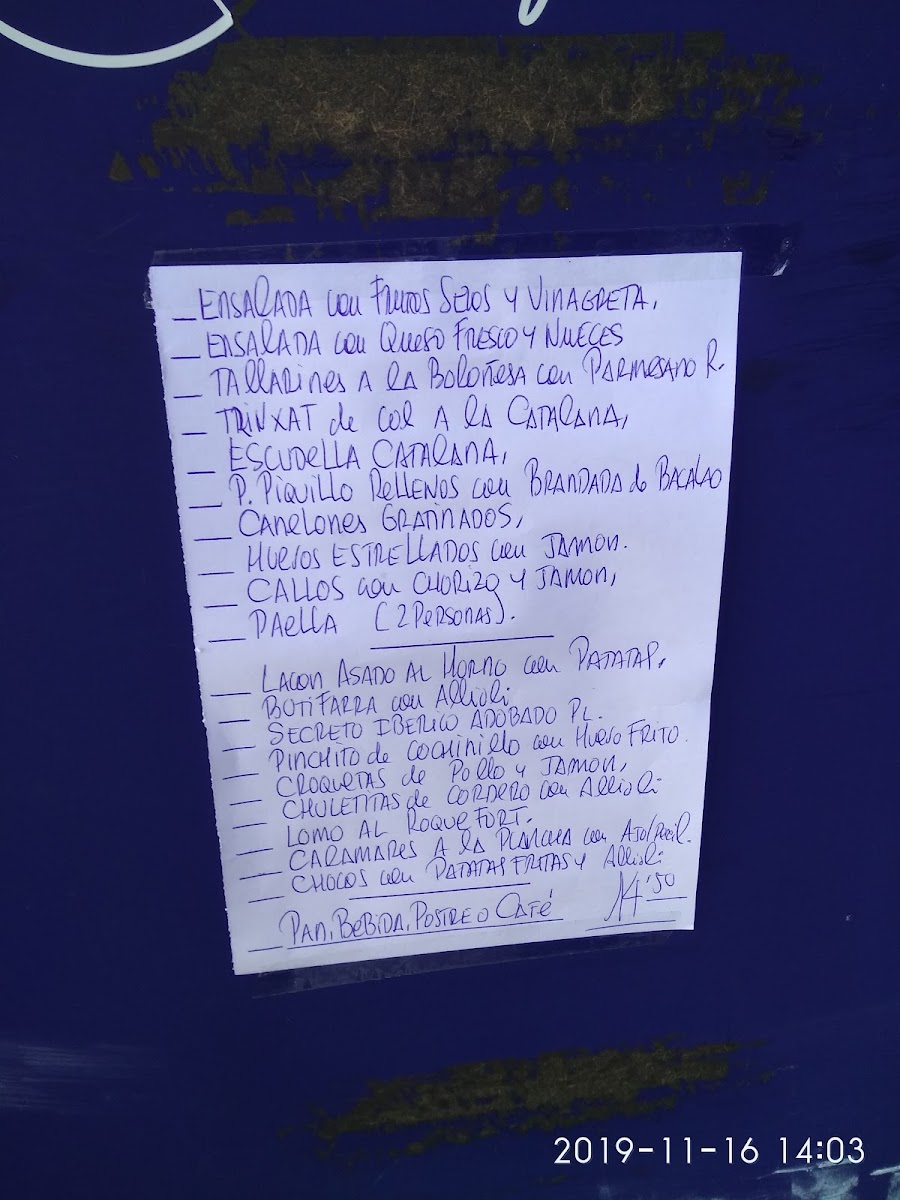 _ENSALADA con FRUTOS SECOS Y VINAGRETA.
_ENSALADA con QUESO FRESCO Y NUECES
_ TALLARINES A LA BOLOÑESA con PARMESANO R.
_ TRINXAT de COL A LA CATALANA,
_ ESCUDELLA CATALANA,
_ P. PIQUILLO RELLENOS con BRANDADA de BACALAO
_ CANELONES GRATINADOS,
_ HUEVOS ESTRELLADOS con JAMON.
_ CALLOS con CHORIZO Y JAMON,
_ PAELLA (2 PERSONAS).
_ LACON ASADO AL HORNO con PATATAS.
_ BOTIFARRA con Allioli
_ SECRETO IBERICO ADOBADO PL.
_ PINCHITO de COCHINILLO con HUEVO FRITO.
_ CROQUETAS de POLLO Y JAMON,
_ CHULETITAS de CORDERO con Allioli
_ LOMO AL ROQUEFORT.
_ CARAMARES A LA PLANCHA con AJO/Perejil.
_ CHOCOS con PATATAS FRITAS Y Allioli
_ PAN, BEBIDA, POSTRE O CAFÉ 14'50
2019-11-16 14:03